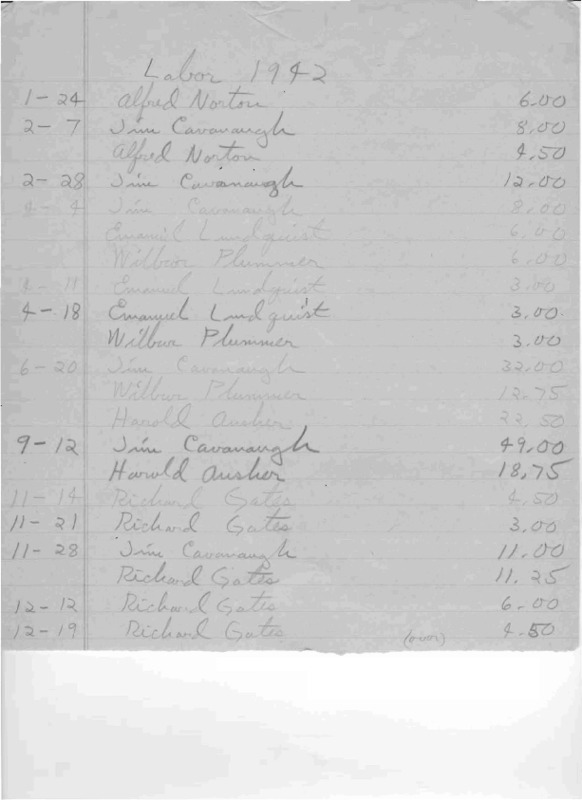 Labor 1942
1-24 Alfred Norton 6.00
2-7 Jim Cavanaugh 8.00
Alfred Norton 4.50
2-28 Jim Cavanaugh 12.00
4-4 Jim Cavanaugh 8.00
Emanuel Lundquist 6.00
Wilbur Plummer 6.00
4-11 Emanuel Lundquist 3.00
4-18 Emanuel Lundquist 3.00
Wilbur Plummer 3.00
6-20 Jim Cavanaugh 32.00
Wilbur Plummer 12.75
Harold Ausher 22.50
9-12 Jim Cavanaugh 49.00
Harold Ausher 18.75
11-14 Richard Gates 4.50
11-21 Richard Gates 3.00
11-28 Jim Cavanaugh 11.00
Richard Gates 11.25
12-12 Richard Gates 6.00
12-19 Richard Gates (over) 4.50